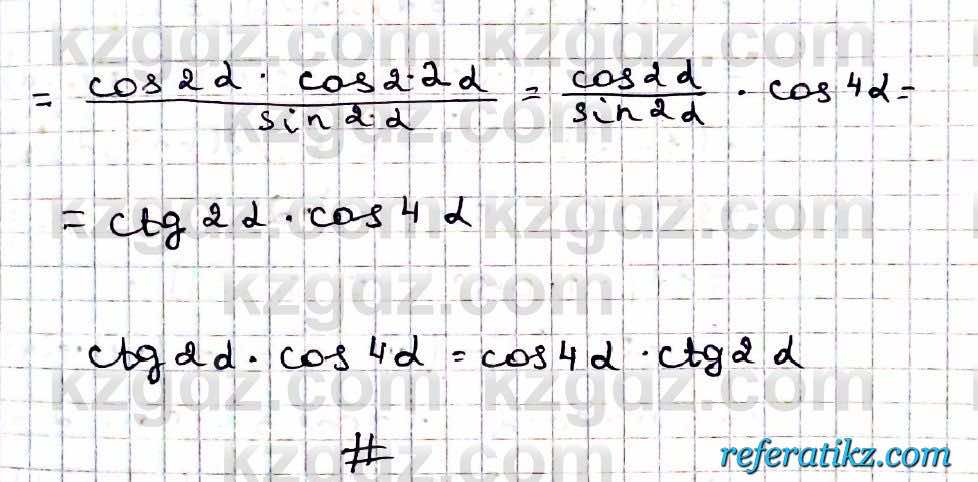 = cos 2α · cos 2·2α / sin 2·α = cos 2α / sin 2α · cos 4α =
= ctg 2α · cos 4α
ctg 2α · cos 4α = cos 4α · ctg 2α
#
kzgdz.com
referatikz.com